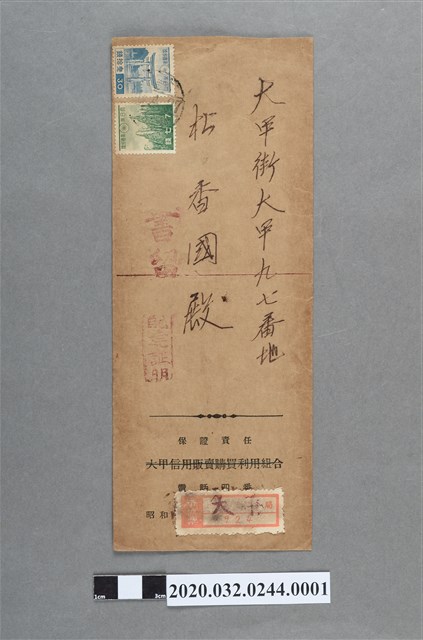 大甲街大甲九七番地
松香國殿
書留
配達証明
30
保證責任
大甲信用販賣購買利用組合
昭和
大甲
1cm
3cm
2020.032.0244.0001